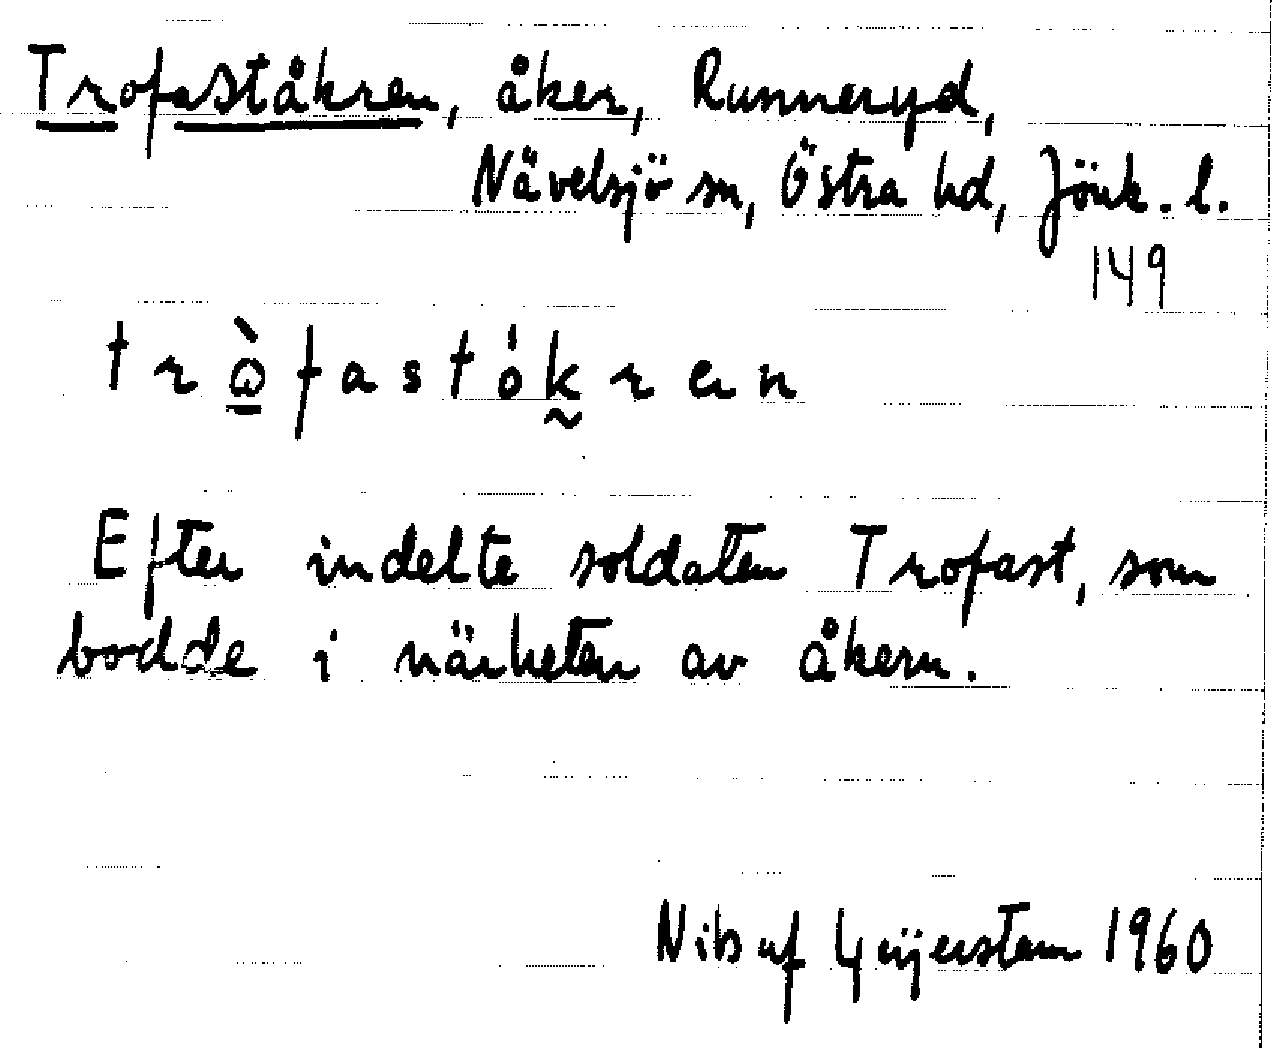 Trofaståkren, åker, Runneryd,
Nävelsjö sn, Östra hd, Jönk. l.
149
trò̠fastókren
Efter indelte soldaten Trofast, som
bodde i närheten av åkern.
Nils af Geijerstam 1960